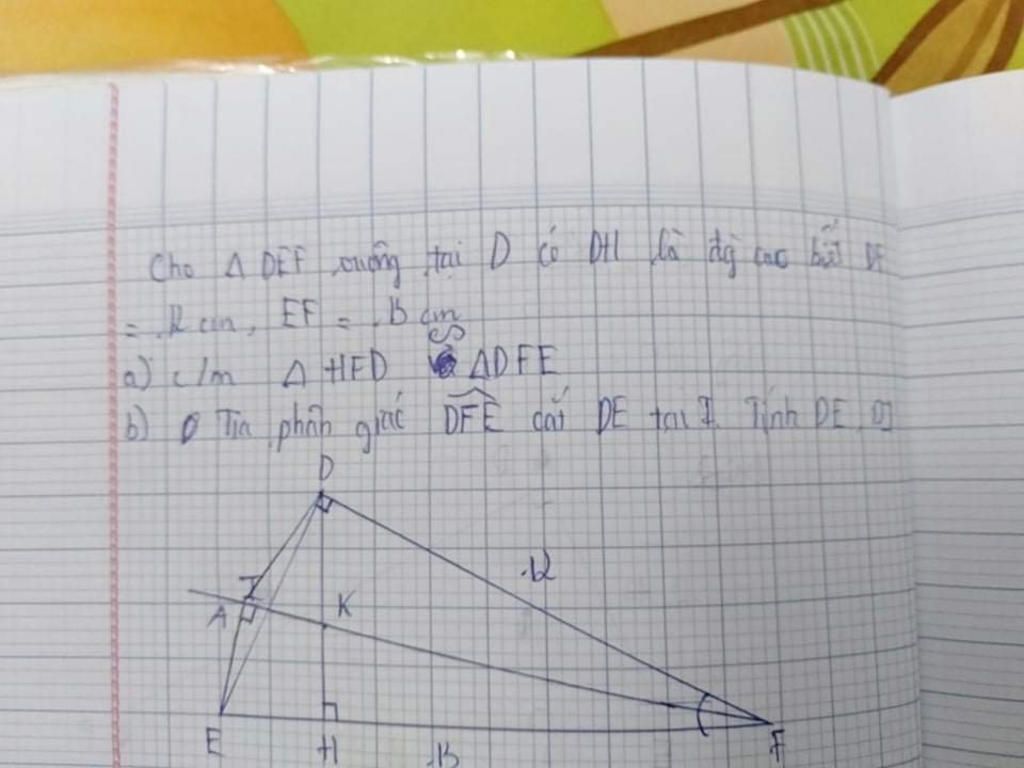 Cho Δ DEF vuông tại D có DH là đg cao biết DF
= 12 cm, EF = 13 cm
a) c/m Δ HED ∽ ΔDFE
b) Tia phân giác DFE cắt DE tại I. Tính DE, DI
D
12
I
A
K
E
H
13
F